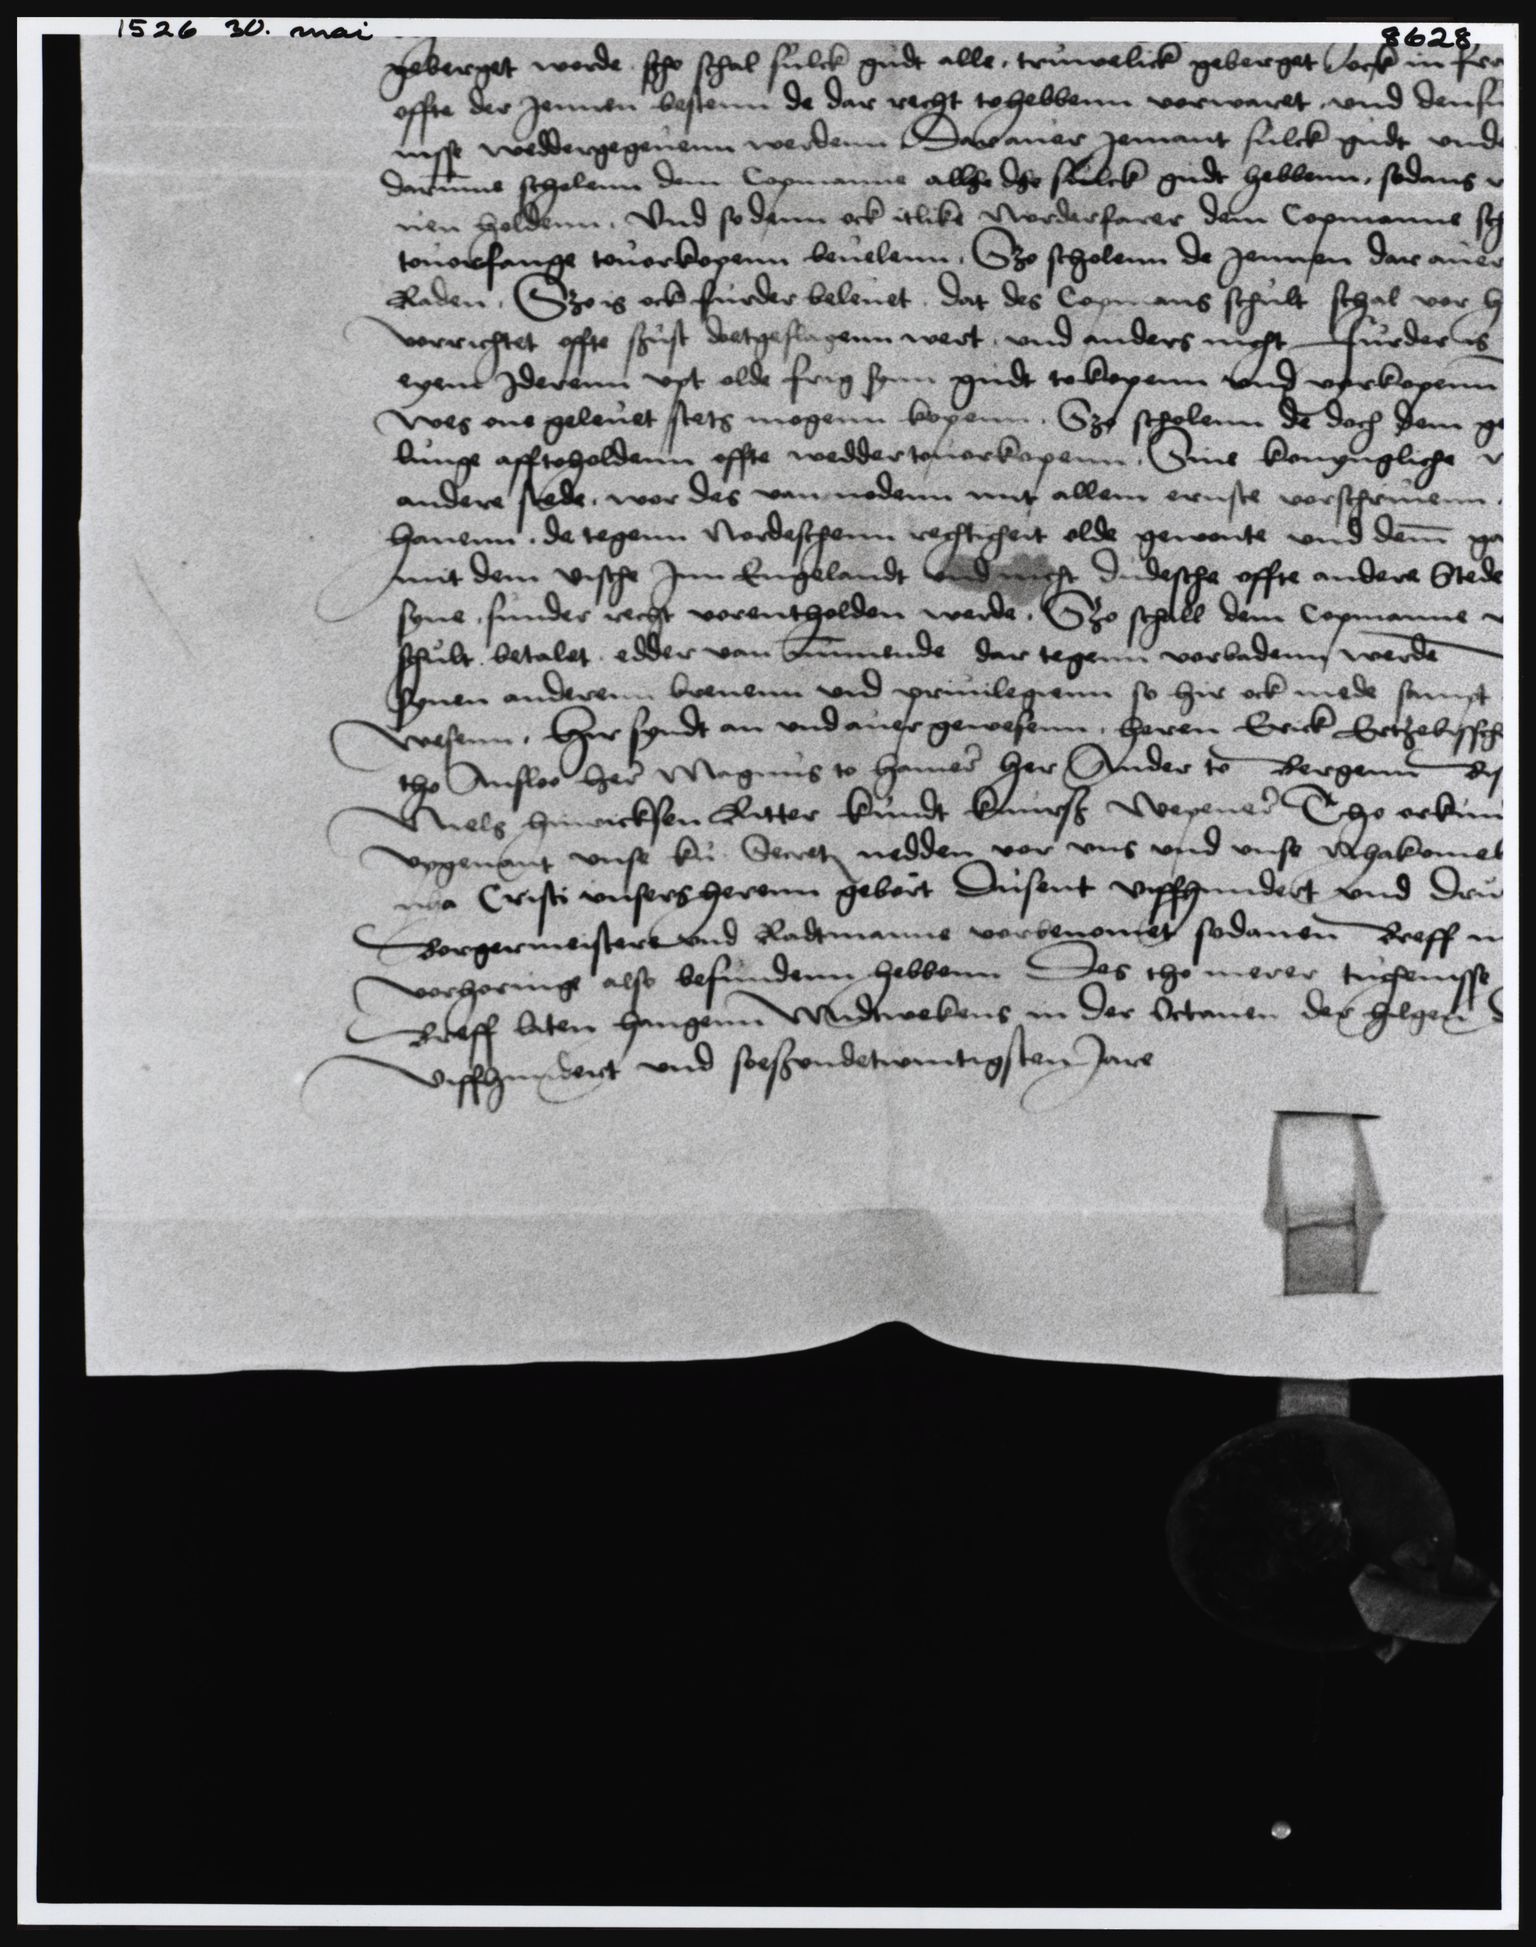 1526 30. mai
8628
geberget worde. szo schal sulck gudt alle. truwelick geberget ock in
offte der jennen bestenn de dar recht tohebbenn vorwaret. vnd
nisse weddergegeuenn werdenn Dar auer jemant sulck gudt
darumme scholenn dem Copmanne allße dße sulck gudt hebbenn. sodans
nen holdenn. Vnd so denn ock itlike Norderfarer dem Copmanne
touorfange touorkopenn beuelenn. Szo scholenn de jennen dar auer
Raden. Szo is ock furder beleuet. dat des Copmans schult schal vor
vorrichtet offte szust doetgeslagenn wert. vnd anders nicht furder is
eyem jderenn vpt olde frig synn gudt tokopenn vnd vorkopenn
wes one geleuet stets mogenn kopenn. Szo scholenn de doch dem
lunge afftoholdenn offte weddertouorkopenn. Sine konyngliche
andere stede. wor des van nodenn mit allem ernste vorschriuenn.
hauenn. de tegenn Nordeschenn rechticheit olde gewonte vnd dem
mit dem vische jnn Engelandt vnd nicht dudesche offte andere Stede
syne. sunder recht vorentholden werde. Szo schall dem Copmanne
schult. betalet. edder van nummende dar tegenn vorbadenn werde
synen anderenn breuenn vnd priuilegienn so hir ock mede sampt
wesenn. Hir syndt an vnd auer gewesenn. heren Erick
tho Ansloo her Magnus to hamer her Ander to Bergenn
Niels hinricksen Ritter kundt knurß Wepener Tho
vpgenant vnse ku. Secret nedden vor vns vnd vnse
Cristi vnsers herenn gebort Dusent viffhundert vnd
Borgermeistere vnd Radtmanne vorbenomet sodanen Breff
vorhoringe also befundenn hebbenn Des tho merer tuchenisse
Breff laten hangenn Midtwekens in der Octauen der hilgen
Viffhundert vnd soeßvndetwintigsten Jare